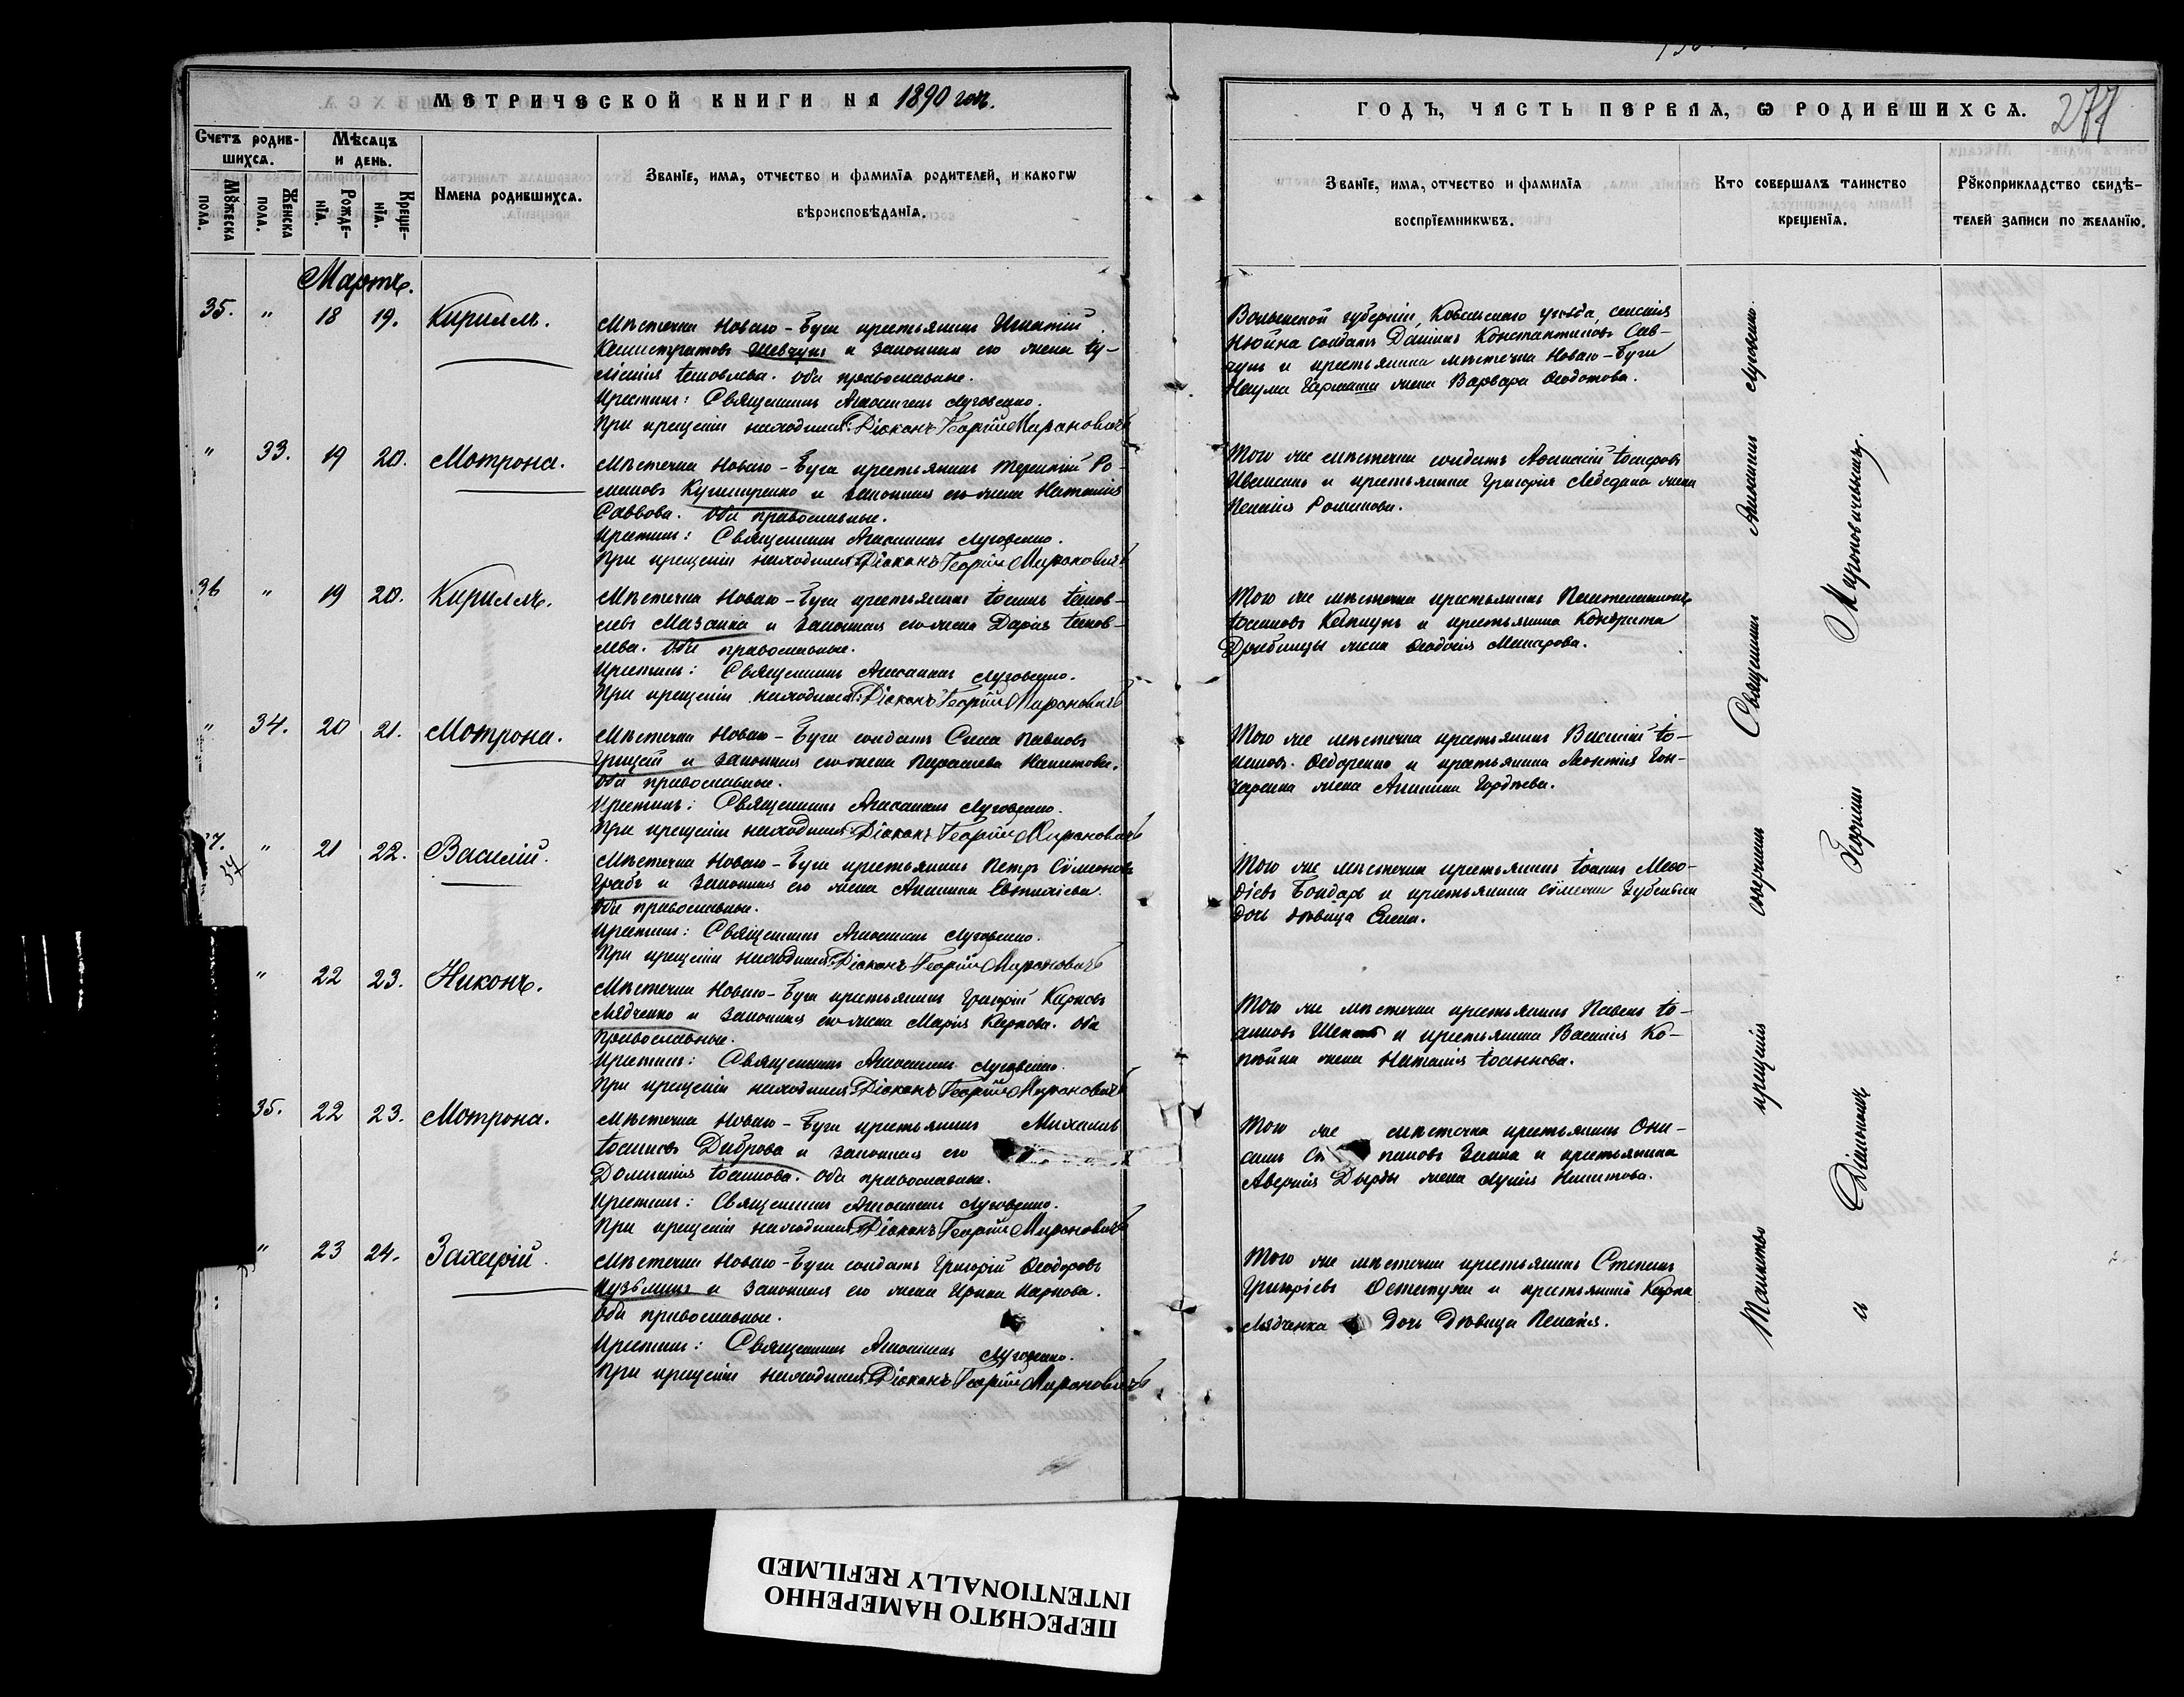 МЕТРИЧЕСКОЙ КНИГИ НА 1890 годъ.
Счетъ родив-
шихся.
Мѣсяцъ
и день.
Мꙋжеска
пола.
Женска
пола.
Рожде-
нїя.
Креще-
нїя.
Имена родившихся.
Званїе, имя, отчество и фамилїя родителей, и какогѡ
вѣроисповѣданїя.
Мартъ.
35. " 18 19. Кириллъ.
Мѣстечка Новаго-Буга крестьянинъ Игнатій
Калистратовъ Шевчукъ и законная его жена Гу-
Іаковлева. Оба православные.
Крестилъ: Священникъ Луговенко.
При крещеніи находился: Діаконъ Георгій Мироновичъ
" 33. 19 20. Мотрона.
Мѣстечка Новаго-Буга крестьянинъ Терентій Ро-
мановъ Кушнренко и законная его жена Наталія
Саввова. Оба православные.
Крестилъ: Священникъ Луговенко.
При крещеніи находился: Діаконъ Георгій Мироновичъ
36 " 19 20. Кириллъ.
Мѣстечка Новаго-Буга крестьянинъ Іоаннъ Іаков-
левъ Мазанка и законная его жена Дарія Іаков-
лева. Оба православные.
Крестилъ: Священникъ Луговенко.
При крещеніи находился: Діаконъ Георгій Мироновичъ
" 34. 20 21. Мотрона.
Мѣстечка Новаго-Буга солдатъ Савва Павловъ
Грицай и законная его жена Параскева Никитова.
Оба православные.
Крестилъ: Священникъ Луговенко.
При крещеніи находился: Діаконъ Георгій Мироновичъ
37. " 21 22. Василій.
37
Мѣстечка Новаго-Буга крестьянинъ Петръ Сѵмеоновъ
Грабъ и законная его жена Акилина Евѳиміева.
Оба православные.
Крестилъ: Священникъ Луговенко.
При крещеніи находился: Діаконъ Георгій Мироновичъ
" 22 23. Никонъ.
Мѣстечка Новаго-Буга крестьянинъ Григорій Карповъ
Лядченко и законная его жена Марія Карпова. Оба
православные.
Крестилъ: Священникъ Луговенко.
При крещеніи находился: Діаконъ Георгій Мироновичъ
35. 22 23. Мотрона.
Мѣстечка Новаго-Буга крестьянинъ Михаилъ
Іоанновъ Диброва и законная его
Домникія Іоаннова. Оба православные.
Крестилъ: Священникъ Луговенко.
При крещеніи находился: Діаконъ Георгій Мироновичъ
" 23 24. Захарій.
Мѣстечка Новаго-Буга солдатъ Григорій Ѳеодоровъ
Кузьминъ и законная его жена Ирина Карпова.
Оба православные.
Крестилъ: Священникъ Луговенко.
При крещеніи находился: Діаконъ Георгій Мироновичъ
ГОДЪ, ЧАСТЬ ПЕРВАЯ, Ѡ РОДИВШИХСЯ. 277
Званїе, имя, отчество и фамилїя
воспрїемникѡвъ.
Кто совершалъ таинство
крещенїя.
Рꙋкоприкладство свидѣ-
телей записи по желанїю.
Волынской губерніи, Ковельскаго уѣзда, селенія
солдатъ Даніилъ Константиновъ Сав-
чукъ и крестьянина мѣстечка Новаго-Буга
Наума Гармаша жена Варвара Ѳеодотова.
Того же мѣстечка солдатъ Аѳанасій Іосифовъ
и крестьянина Григорія Лебедана жена
Пелагія Романова.
Того же мѣстечка крестьянинъ Пантелеимонъ
Іоанновъ Капшукъ и крестьянина Кондрата
Дрибницы жена Ѳеодосія Макарова.
Того же мѣстечка крестьянинъ Василій Іо-
анновъ Ѳедоренко и крестьянина Леонтія Гон-
чаренка жена Акилина Гордѣева.
Того же мѣстечка крестьянинъ Іоаннъ Меѳо-
діевъ Бондарь и крестьянина Сѵмеона
дочь дѣвица Елена.
Того же мѣстечка крестьянинъ Павелъ Іо-
анновъ и крестьянина Василія Ко-
пѣйка жена Наталія
Того же мѣстечка крестьянинъ Они-
симъ пановъ Заика и крестьянина
Аверкія Дырды жена Лукія Никитова.
Того же мѣстечка крестьянинъ Стефанъ
Григоріевъ Остапука и крестьянина Карпа
Лядченка дочь дѣвица Пелагія.
Таинство крещенія совершилъ Священникъ Луговенко
съ Діакономъ Георгіемъ Мироновичемъ.
ПЕРЕСНЯТО НАМЕРЕННО
INTENTIONALLY REFILMED